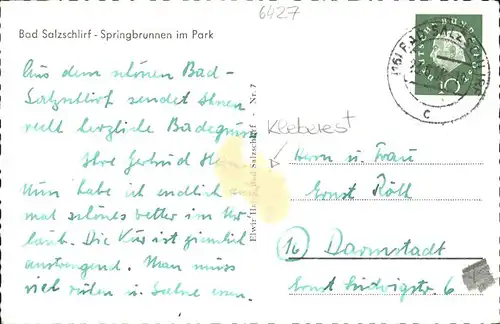 6427
Bad Salzschlirf - Springbrunnen im Park
(16) BAD SALZSCHLIRF
c
Aus dem schönen Bad-
Salzschlirf sendet Ihnen
recht herzliche Badegrüsse
Ihre Gertrud
Nun habe ich endlich auch
mal schönes Wetter im Ur-
laub. Die Kur ist ziemlich
anstrengend. Man muss
viel ruhen u. Salze essen.
Bad Salzschlirf - Nr. 7
Kleberest
Herrn u. Frau
Ernst Köll
16 Darmstadt
Ernst Ludwigstr 6